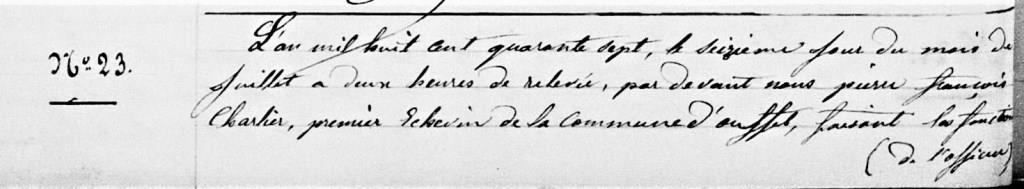 N.o 23.
L'an mil huit cent quarante sept, le seizième jour du mois de
juillet a deux heures de relevée, par devant nous pierre françois
Charlier, premier Echevin de la Commune d'ouffet, faisant les fonction
(de l'officier)